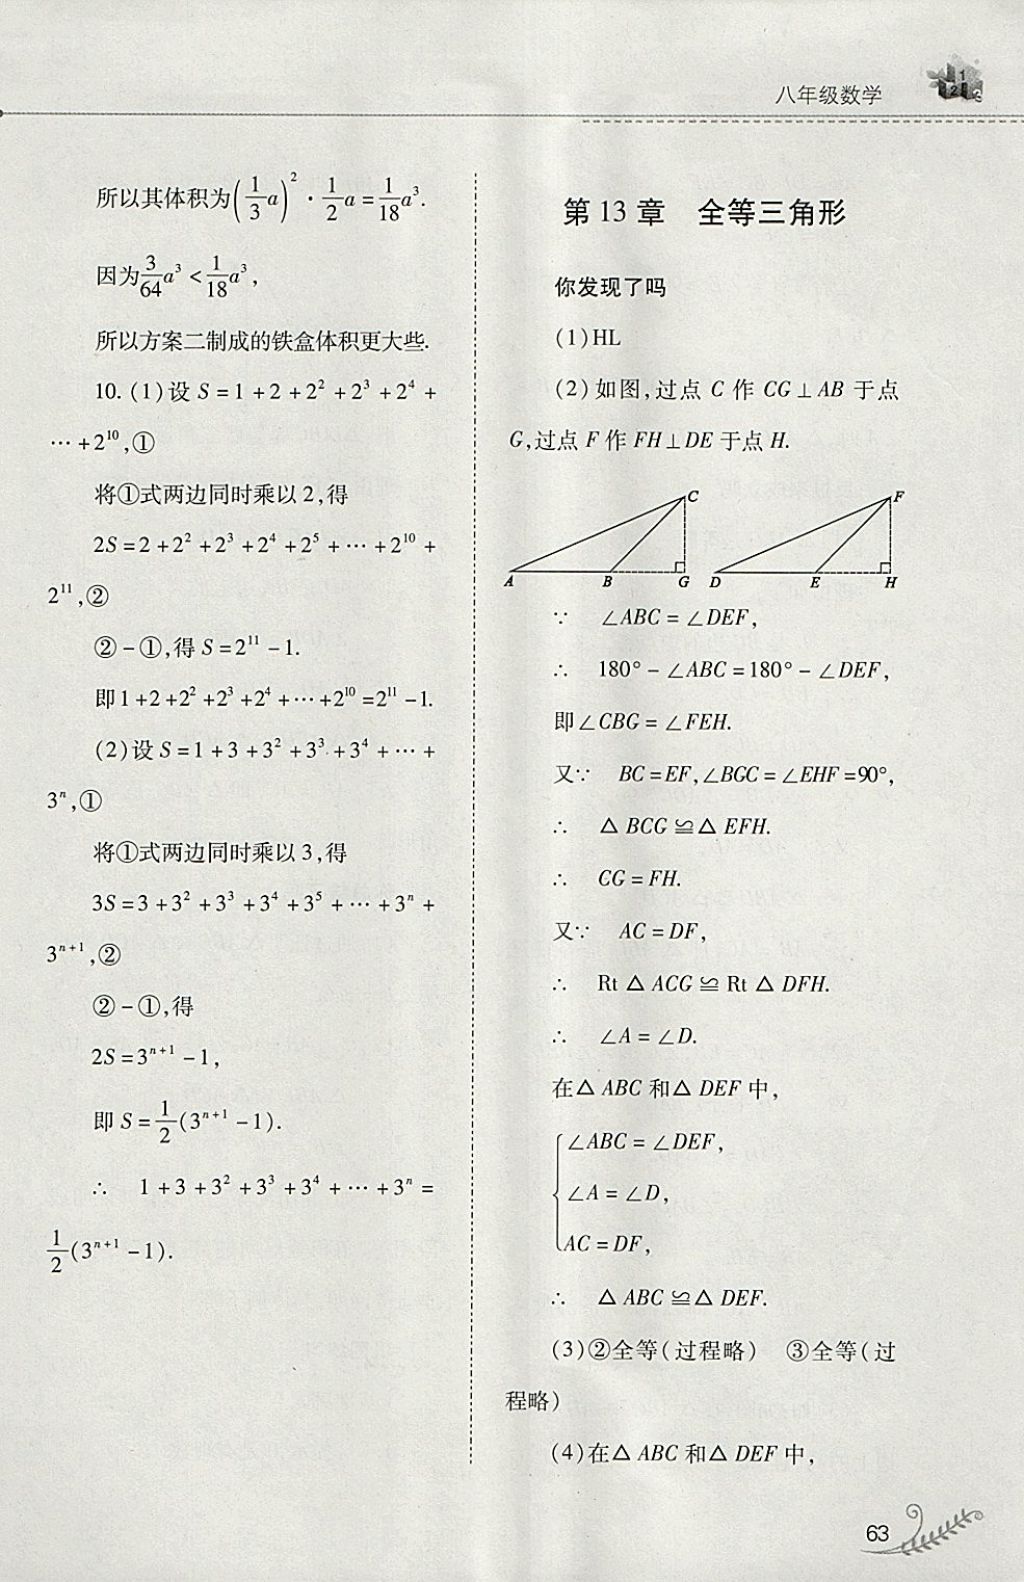 八年级数学
所以其体积为(1/3 a)²·1/2 a=1/18 a³.
因为3/64 a³<1/18 a³,
所以方案二制成的铁盒体积更大些.
10.(1)设S=1+2+2²+2³+2⁴+
…+2¹⁰,①
将①式两边同时乘以2,得
2S=2+2²+2³+2⁴+2⁵+…+2¹⁰+
2¹¹,②
②-①,得S=2¹¹-1.
即1+2+2²+2³+2⁴+…+2¹⁰=2¹¹-1.
(2)设S=1+3+3²+3³+3⁴+…+
3ⁿ,①
将①式两边同时乘以3,得
3S=3+3²+3³+3⁴+3⁵+…+3ⁿ+
3ⁿ⁺¹,②
②-①,得
2S=3ⁿ⁺¹-1,
即S=1/2(3ⁿ⁺¹-1).
∴ 1+3+3²+3³+3⁴+…+3ⁿ=
1/2(3ⁿ⁺¹-1).
第13章 全等三角形
你发现了吗
(1)HL
(2)如图,过点C作CG⊥AB于点
G,过点F作FH⊥DE于点H.
C F
A B G D E H
∵ ∠ABC=∠DEF,
∴ 180°-∠ABC=180°-∠DEF,
即∠CBG=∠FEH.
又∵ BC=EF,∠BGC=∠EHF=90°,
∴ △BCG≌△EFH.
∴ CG=FH.
又∵ AC=DF,
∴ Rt△ACG≌Rt△DFH.
∴ ∠A=∠D.
在△ABC和△DEF中,
∠ABC=∠DEF,
∠A=∠D,
AC=DF,
∴ △ABC≌△DEF.
(3)②全等(过程略) ③全等(过
程略)
(4)在△ABC和△DEF中,
63